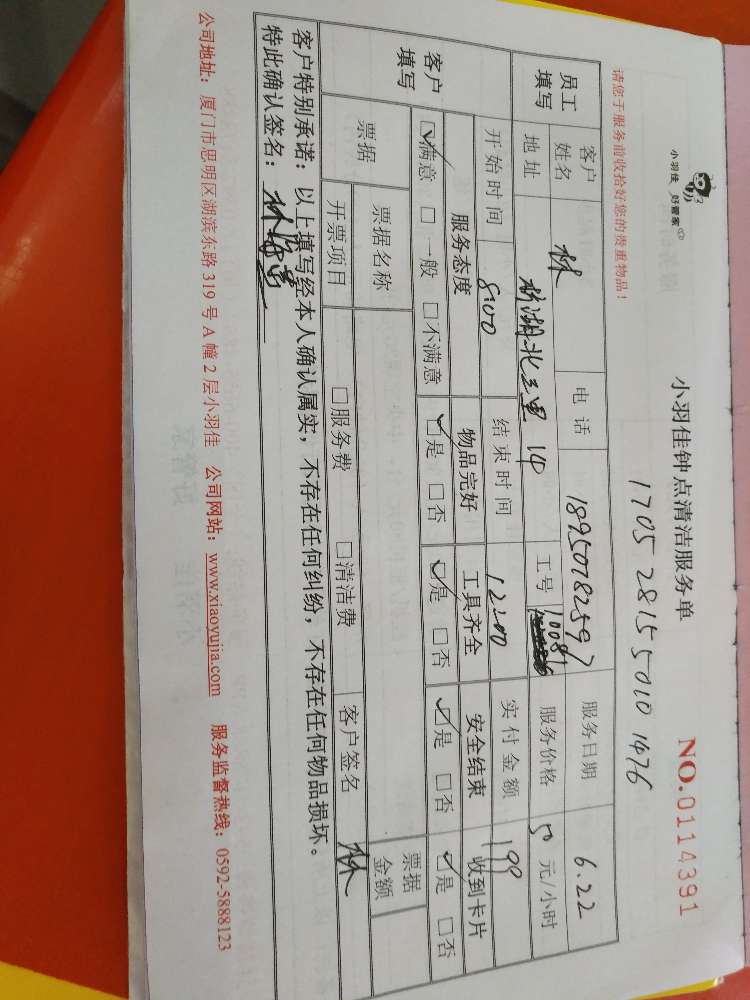 小羽佳 好管家
小羽佳钟点清洁服务单
NO.0114391
请您于服务前收拾好您的贵重物品！
1705 2815 5010 1476
员工填写 客户姓名 林 电话 18950782597 服务日期 6.22
地址 新湖北三里 14 工号 10081 服务价格 50 元/小时
客户填写 开始时间 8:00 结束时间 12:00 实付金额 199
服务态度 物品完好 工具齐全 安全结束 收到卡片
☑满意 □一般 □不满意 ☑是 □否 ☑是 □否 ☑是 □否 ☑是 □否
票据 票据名称 票据金额
开票项目 □服务费 □清洁费 客户签名 林
客户特别承诺：以上填写经本人确认属实，不存在任何纠纷，不存在任何物品损坏。
特此确认签名：林
公司地址：厦门市思明区湖滨东路 319 号 A 幢 2 层小羽佳 公司网站：www.xiaoyujia.com 服务监督热线：0592-5888123